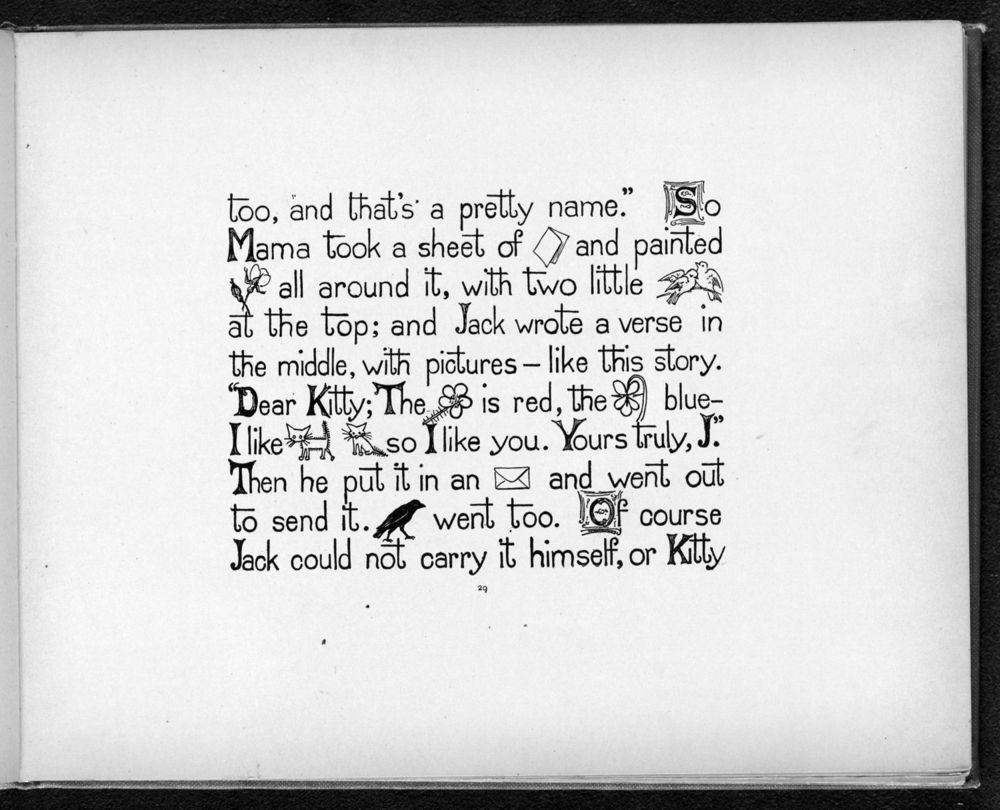 too, and that's a pretty name." So
Mama took a sheet of and painted
all around it, with two little
at the top; and Jack wrote a verse in
the middle, with pictures – like this story.
"Dear Kitty; The is red, the blue–
I like so I like you. Yours truly, J."
Then he put it in an and went out
to send it. went too. Of course
Jack could not carry it himself, or Kitty
29